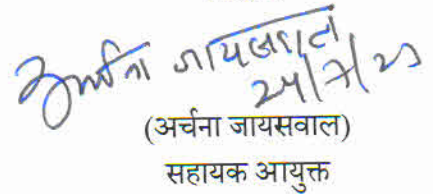 अर्चना जायसवाल
24/7/23
(अर्चना जायसवाल)
सहायक आयुक्त